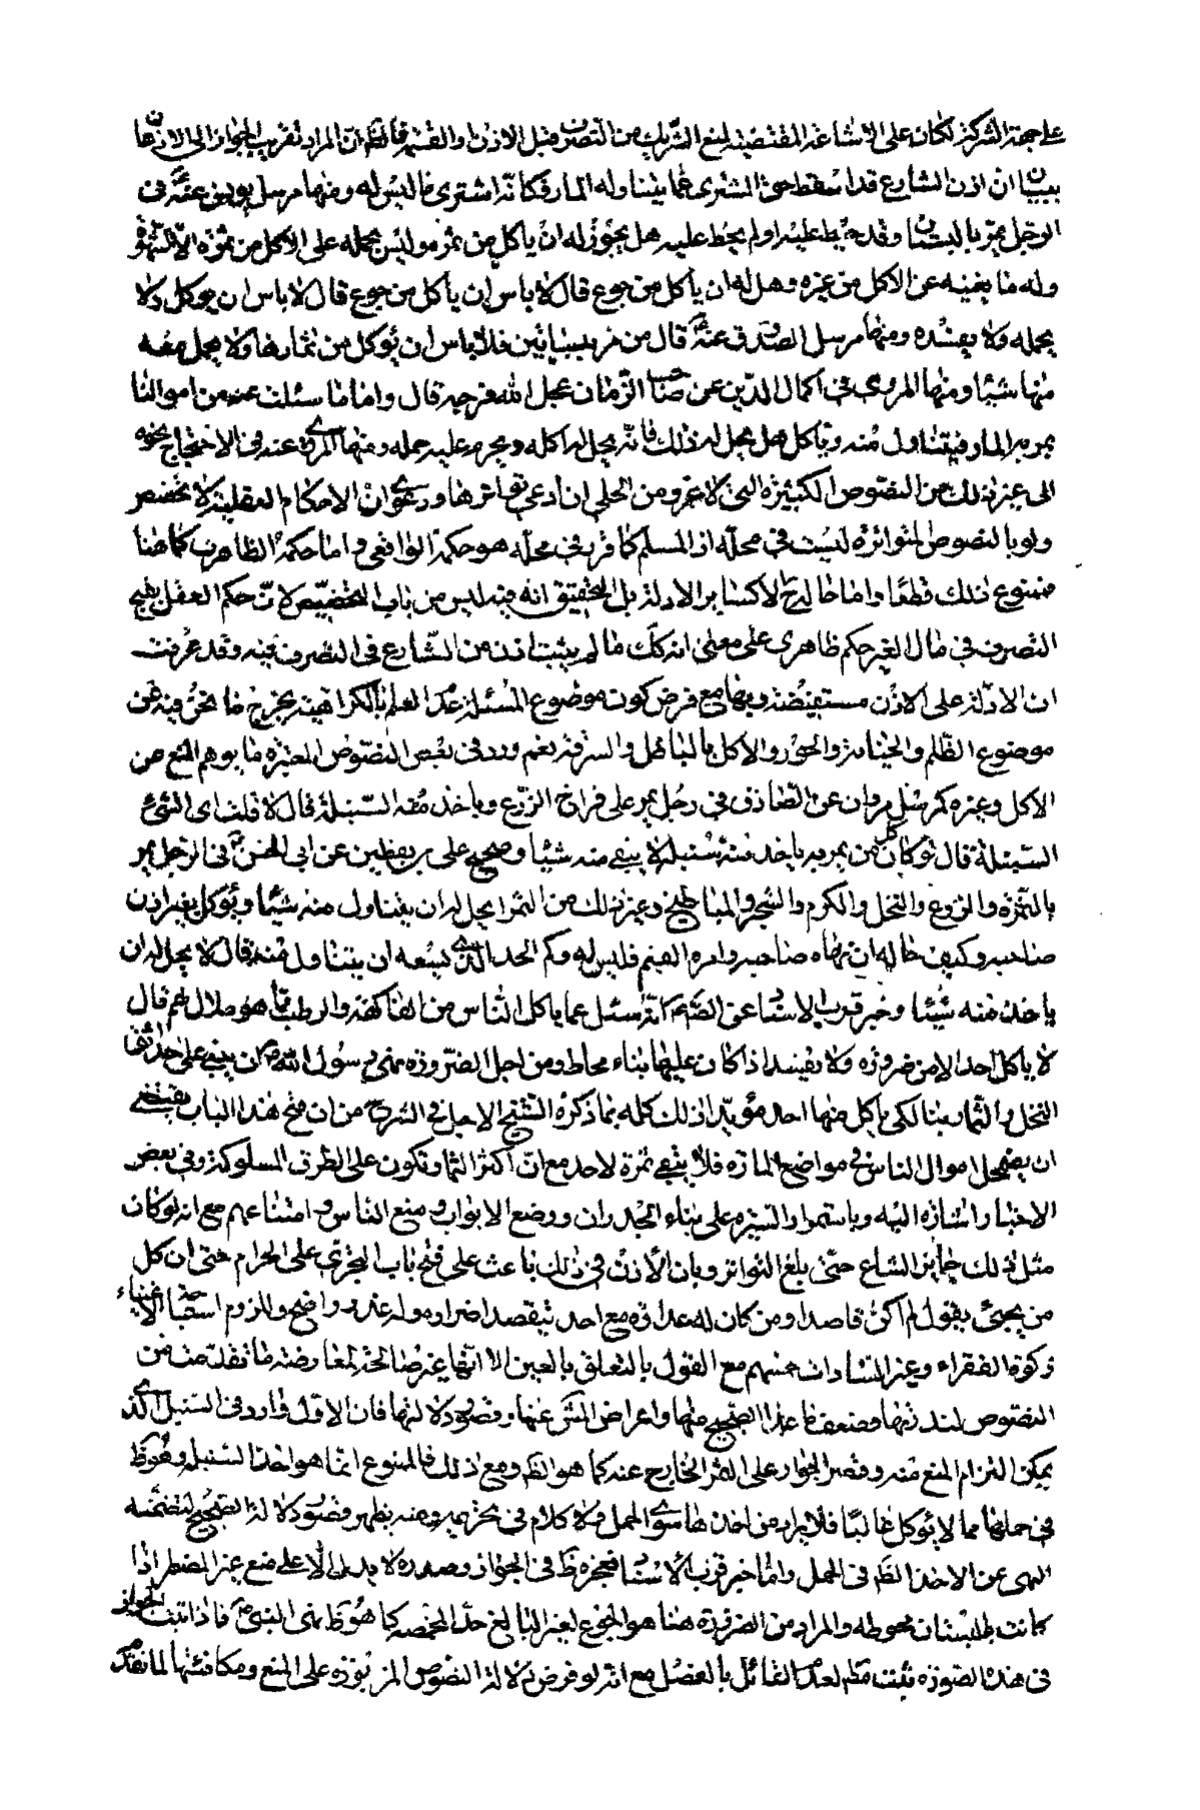 على جهة الشركة لكان على الاشاعة المقتضية لمنع الشريك من التصرف قبل الاذن والقسمة فالظ ان المراد تقريب الجواز الى الاذهان
ببيان ان اذن الشارع قد اسقط حق المشترى عما يتناوله المار فكانه اشترى ما ليس له ومنها مرسل يونس عنه ع فى
الرجل يمر بالبستان وقد حيط عليه او لم يحط عليه هل يجوز له ان ياكل من ثمره وليس يحمله على الاكل من ثمره الا الشهوة
وله ما يغنيه عن الاكل من غيره وهل له ان ياكل من جوع قال لا باس ان ياكل من جوع قال لا باس ان يوكل ولا
يحمله ولا يفسده ومنها مرسل الصدوق عنه ع قال من مر ببساتين فلا باس ان يؤكل من ثمارها ولا يحمل معه
منها شيئا ومنها المروى فى اكمال الدين عن صاحب الزمان عجل الله فرجه قال واما ما سئلت عنه من اموالنا
يمر به المار فيتناول منه وياكل هل يحل له ذلك فانه يحل له اكله ويحرم عليه حمله ومنها المروى عنه فى الاحتجاج نحوه
الى غير ذلك من النصوص الكثيرة التى لا غرو من الحلى ان ادعى تواترها ودعوى ان الاحكام العقلية لا تخصص
ولو بالنصوص المتواترة ليست فى محله اذ المسلم كما قرر فى محله هو حكمه الواقعى واما حكمه الظاهرى كما هنا
فممنوع ذلك قطعا واما حاله ح الا كساير الادلة بل التحقيق انه فيه ليس من باب التخصيص لان حكم العقل بقبح
التصرف فى مال الغير حكم ظاهرى على معنى انه كلك ما لم يثبت اذن من الشارع فى التصرف فيه وقد عرفت
ان الادلة على الاذن مستفيضة وبها مع فرض كون موضوع المسئلة عدم العلم بالكراهية يخرج ما نحن فيه عن
موضوع الظلم والخيانة والجور والاكل بالباطل والسرقة نعم ورد فى بعض النصوص المعتبرة ما يوهم المنع من
الاكل وغيره كمرسل مروان عن الصادق فى رجل يمر على قراح الزرع وياخذ منه السنبلة قال لا قلت اى الشئ
السنبلة قال لو كان كل من يمر به ياخذ منه سنبلة لا يبقى منه شيئا وصحيح على بن يقطين عن ابى الحسن ع فى الرجل يمر
بالثمرة والزروع والنخل والكرم والشجر والمباطخ وغير ذلك من الثمر ايحل له ان يتناول منه شيئا ويؤكل بغير اذن
صاحبه وكيف حاله ان نهاه صاحبه وامره القيم فليس له وكم الحد الذى يسعه ان يتناول منه قال لا يحل له ان
ياخذ منه شيئا وخبر قرب الاسناد عن الصم انه سئل عما ياكل الناس من الفاكهة والرطب مما هو حلال لهم قال
لا ياكل احد الا من ضرورة ولا يفسد اذا كان عليها بناء محاط ومن اجل الضرورة نهى رسول الله ص ان يبنى على حدائق
النخل والثمار بنا لكى ياكل منها احد مؤيدا ذلك كله بما ذكره الشيخ الاجل فى الشرح من ان فتح هذا الباب يقتضى
ان يضمحل اموال الناس فى مواضع المارة فلا يبقى ثمرة لاحد مع ان اكثر الثمار تكون على الطرق المسلوكة وفى بعض
الاخبار اشارة اليه وباستمرار السيرة على بناء الجدران ووضع الابواب ومنع الناس وامتناعهم مع انه لو كان
مثل ذلك جايز الشاع حتى بلغ التواتر وبان الاذن فى ذلك باعث على فتح باب التجرى على الحرام حتى ان كل
من يجئ يقول لم اكن قاصدا ومن كان له عداوة مع احد يقصد اضراره وله عذر واضح ولزوم استحباب الاغنياء
زكوة الفقراء وغير السادات خمسهم مع القول بالتعلق بالعين الا انها غير صالحة لمعارضة ما تقدم من
النصوص لندرتها وضعف ما عدا الصحيح منها واعراض الاكثر عنها وقصور دلالتها فان الاول وارد فى السنبل الذى
يمكن التزام المنع منه وقصر الجواز على الثمر الخارج عنه كما هو الظ ومع ذلك فالممنوع انما هو اخذ السنبل وهو ظ
فى حملها مما لا يؤكل غالبا فلا يراد من اخذها سوى الحمل ولا كلام فى تحريمه ومنه يظهر قصور دلالة الصحيح لتضمنه
النهى عن الاخذ الظ فى الحمل واما خبر قرب الاسناد فعجزه ظ فى الجواز وصدره لا يدل الا على منع غير المضطر اذا
كانت البستان محوطة والمراد من الضرورة هنا هو الجوع لغير البالغ حد المخمصة كما هو ظ نهى النبى ص فاذا ثبت الجواز
فى هذه الصورة ثبت مط لعدم القائل بالفصل مع انه لو فرض دلالة النصوص المزبورة على المنع ومكافئتها لما تقدم